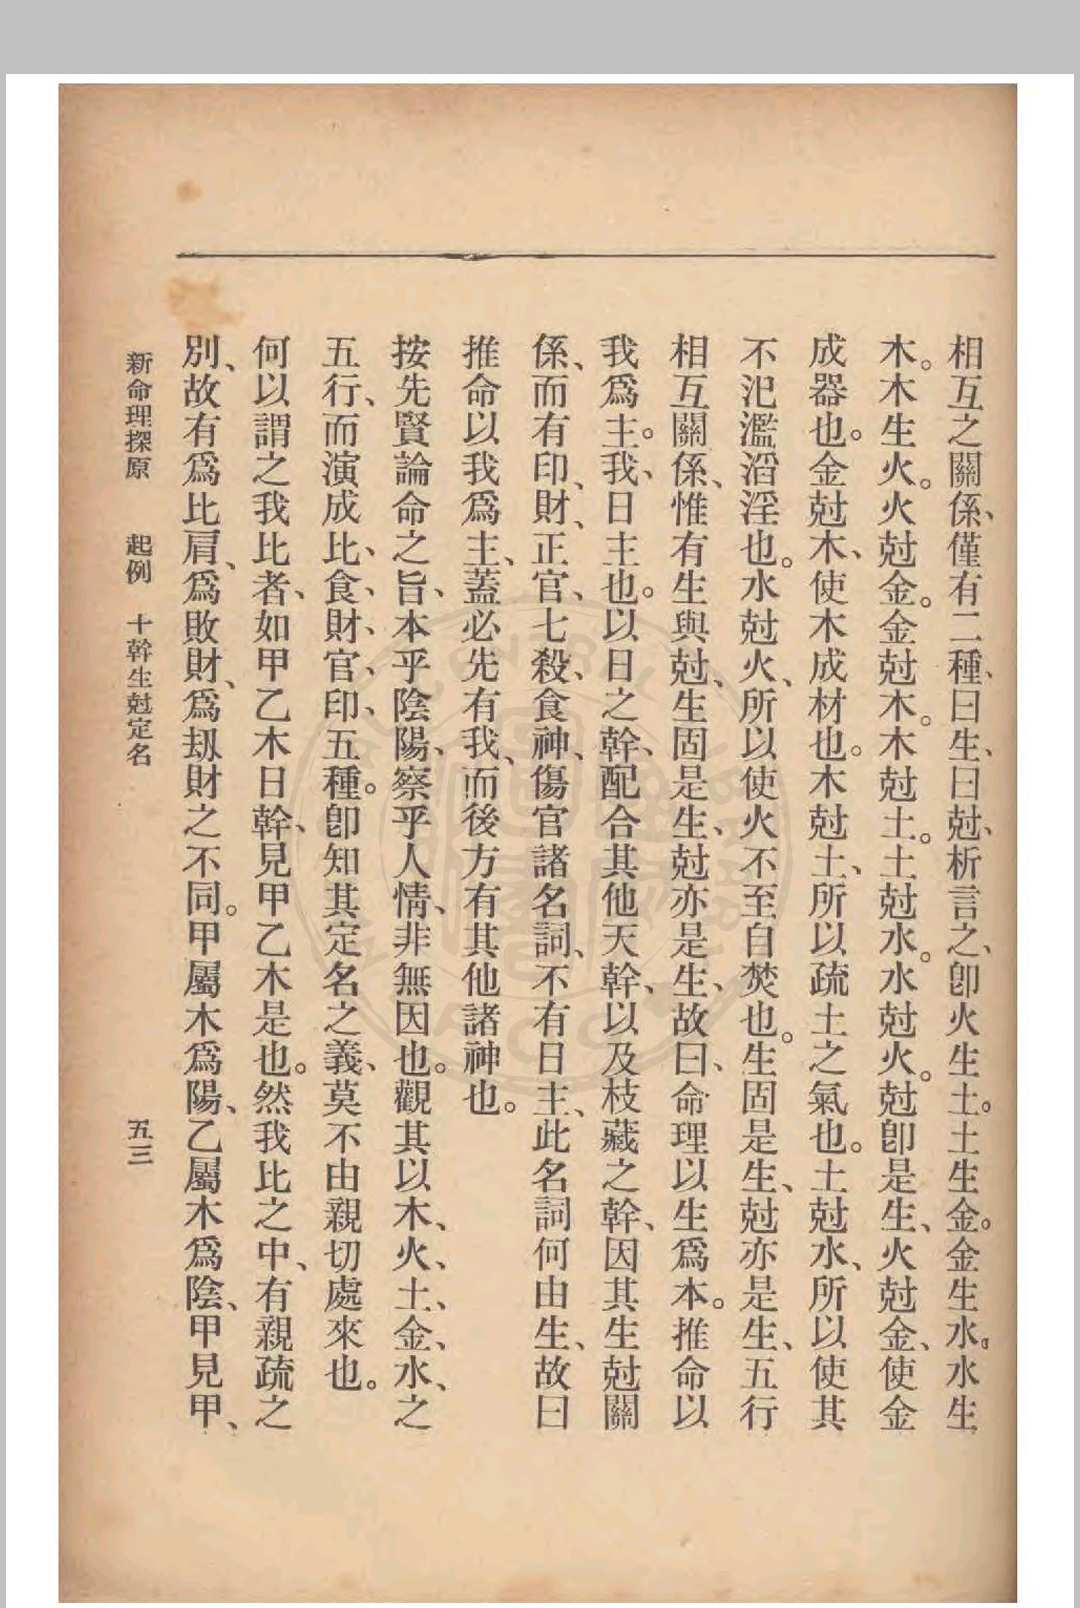 相互之關係、僅有二種、曰生、曰尅、析言之、卽火生土。土生金。金生水。水生
木。木生火。火尅金。金尅木。木尅土。土尅水。水尅火。尅卽是生、火尅金、使金
成器也。金尅木、使木成材也。木尅土、所以疏土之氣也。土尅水、所以使其
不氾濫滔淫也。水尅火、所以使火不至自焚也。生固是生、尅亦是生、五行
相互關係、惟有生與尅、生固是生、尅亦是生、故曰、命理以生爲本。推命以
我爲主。我、日主也。以日之幹、配合其他天幹、以及枝藏之幹、因其生尅關
係、而有印、財、正官、七殺、食神、傷官諸名詞、不有日主、此名詞何由生、故曰
推命以我爲主、蓋必先有我、而後方有其他諸神也。
按先賢論命之旨、本乎陰陽、察乎人情、非無因也。觀其以木、火、土、金、水、之
五行、而演成比、食、財、官、印、五種。卽知其定名之義、莫不由親切處來也。
何以謂之我比者、如甲乙木日幹、見甲乙木是也。然我比之中、有親疏之
別、故有爲比肩、爲敗財、爲刼財之不同。甲屬木爲陽、乙屬木爲陰、甲見甲、
新命理探原 起例 十幹生尅定名 五三